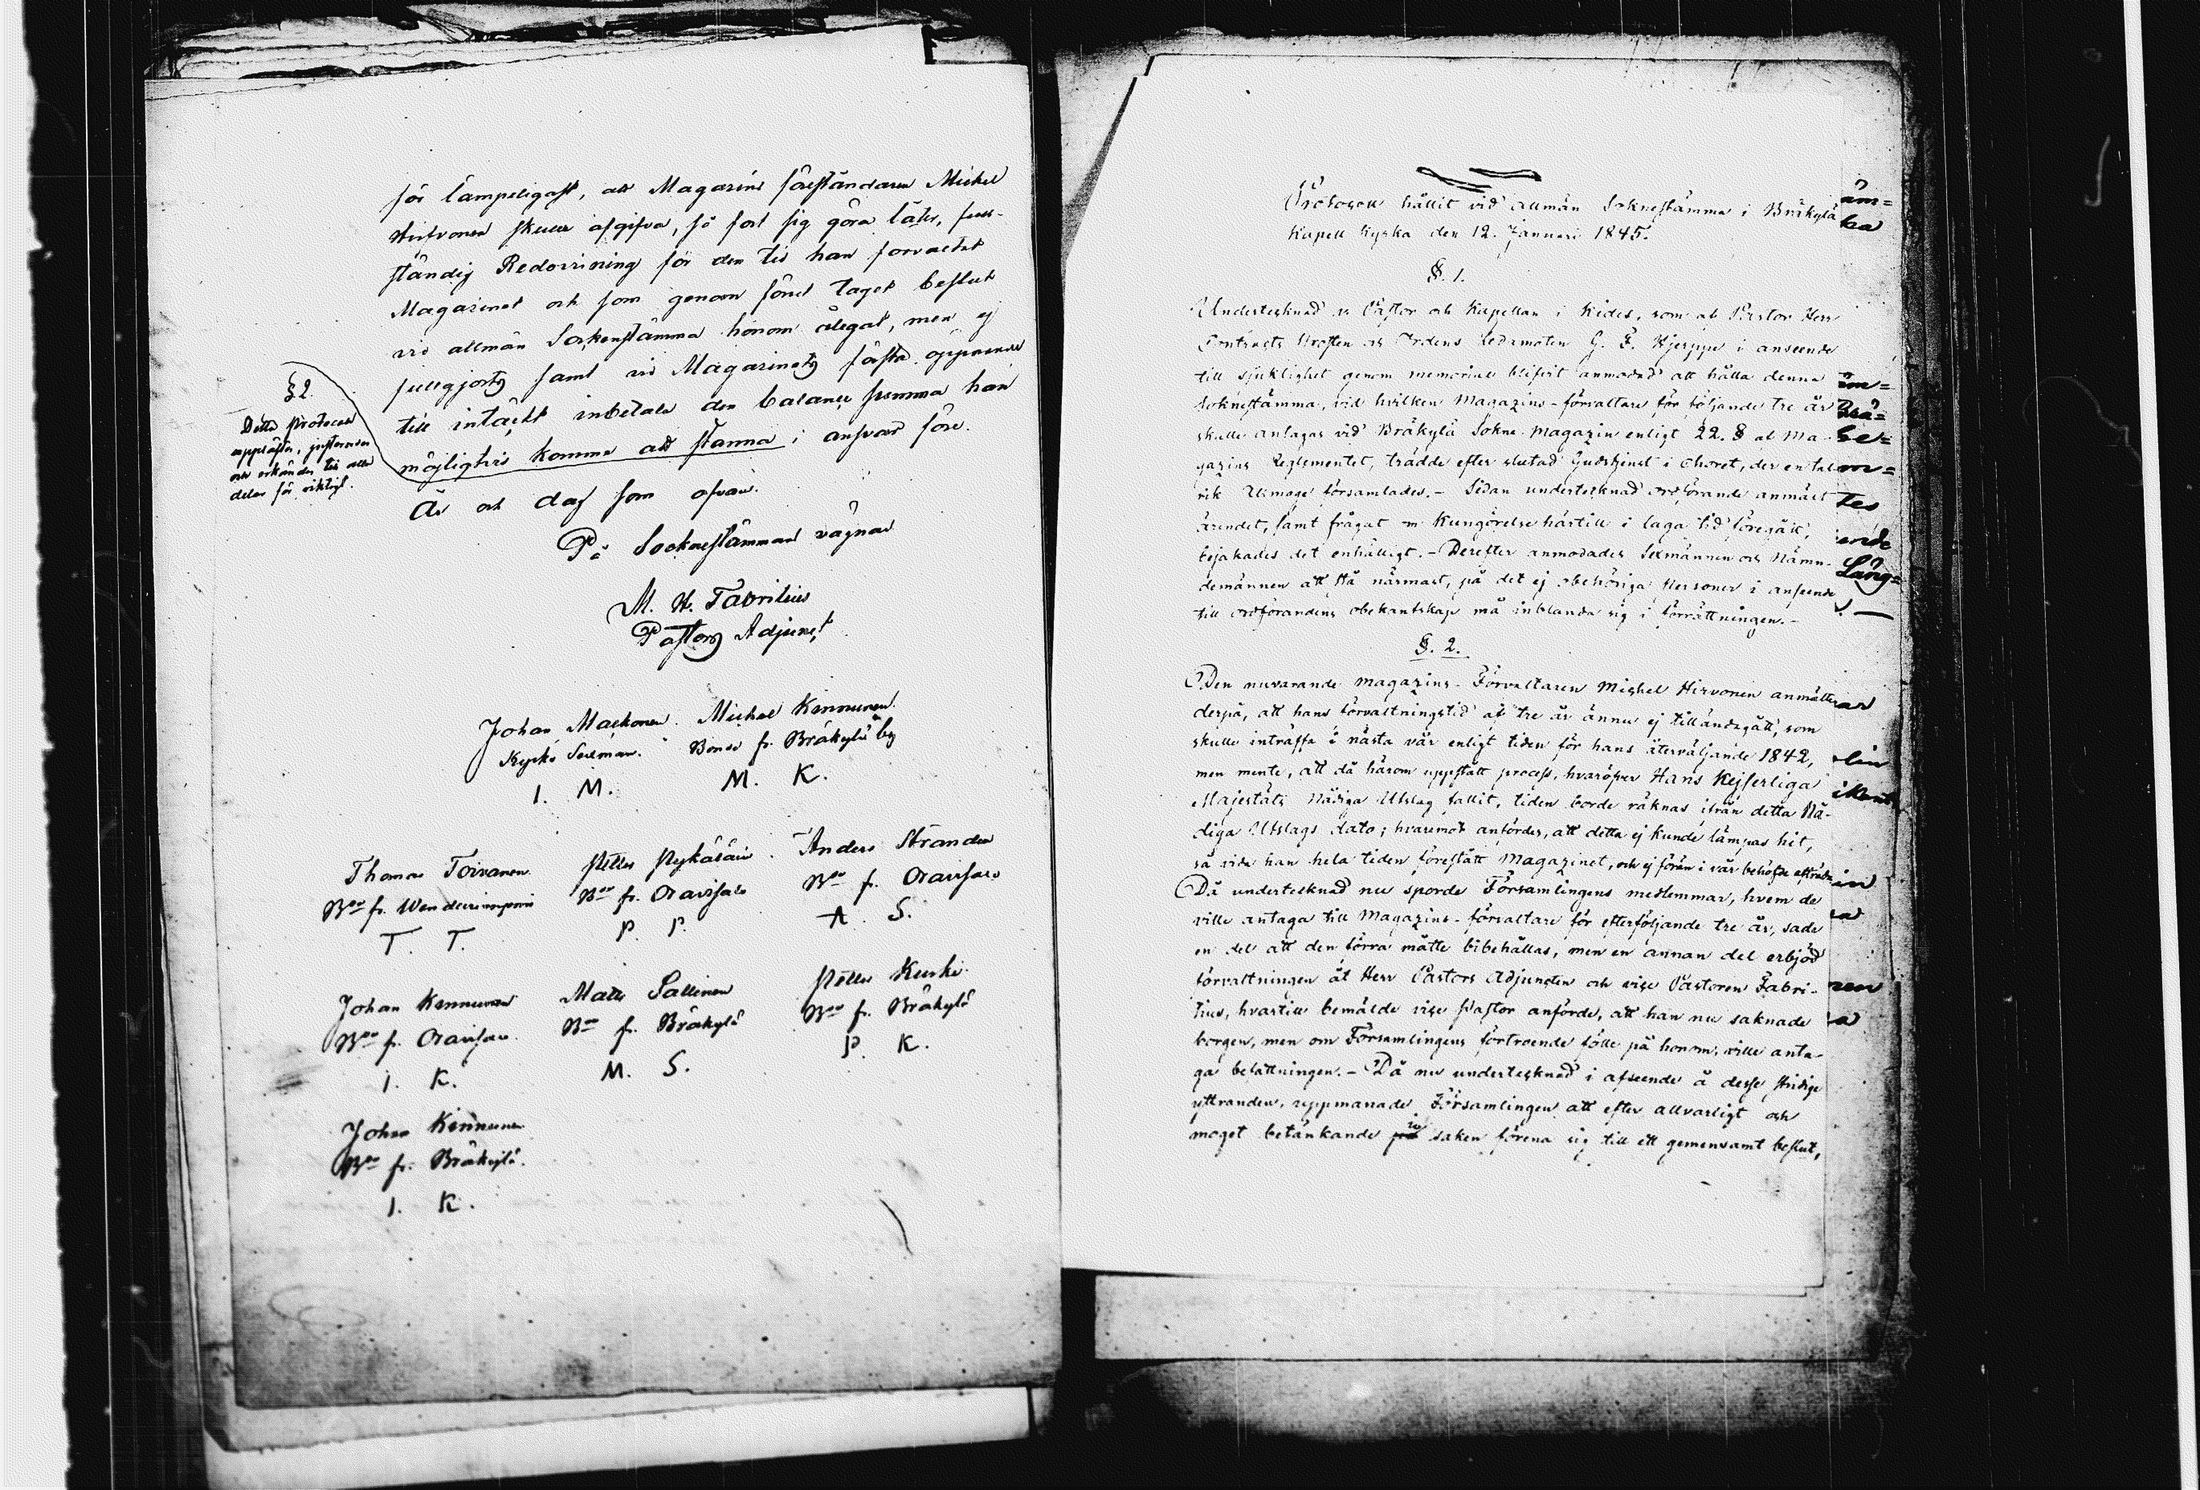 för lämpeligast, att Magazins föreståndaren Michel
Hirvonen skulle afgifva, så fort sig göra låter, full-
ständig Redovisning för den tid han förvaltat
Magazinet och som genom förut taget beslut
vid allmän Sockenstämma honom ålegat, men ej
fullgjorts samt vid Magazinets första öppnande
till intäckt inbetala den balance summa han
möjligtvis komme att stanna i ansvar före.
§ 2.
Detta Protocoll
upplästes, justerades
och erkändes till alla
delar för riktigt.
År och dag som ofvan.
På Socknestämmans vägnar
M. H. Fabritius
Pastors Adjunct
Johan Maekonen. Michel Kinnunen
Kyrko Sexman. Bonde fr. Bräkylä by
I. M. M. K.
Thomas Toivanen. Petter Pykäläin. Anders Stranden
Bon fr. Bon fr. Oravisalo Bon fr. Oravisalo
T. T. P. P. A. S.
Johan Kinnunen Matts Sallinen Petter Kurki
Bon fr. Oravisalo Bon fr. Bräkylä Bon fr. Bräkylä
I. K. M. S. P. K.
Johan Kinnunen
Bon fr. Bräkylä.
I. K.
Protocoll hållit vid allmän Soknestämma i Bräkylä
Kapell Kyrka den 12. Januari 1845.
§. 1.
Undertecknad v. Pastor och Kapellan i Kides, som af Pastor Herr
Contracts Prosten och Ordens Ledamoten G. F. i anseende
till sjuklighet genom memorial blifvit anmodad att hålla denna
Soknestämma, vid hvilken Magazins-förvaltare för följande tre år
skulle antagas vid Bräkylä Sokne-magazin enligt 22. § af Ma-
gazins Reglementet, trädde efter slutad Gudstjenst i Choret, der en tal-
rik Allmoge församlades. – Sedan undertecknad ordförande anmält
ärendet, samt frågat om Kungörelse härtill i laga tid föregått,
bejakades det enhälligt. – Derefter anmodades Sexmännen och Nämn-
demännen att stå närmast, på det ej obehöriga Personer i anseende
till ordförandens obekantskap må inblanda sig i förrättningen. –
§. 2.
Den nuvarande magazins-Förvaltaren Mickel Hirvonen anmälte
derpå, att hans förvaltningstid af tre år ännu ej tilländagått, som
skulle inträffa i nästa vår enligt tiden för hans återväljande 1842,
men mente, att då härom uppstått process, hvaröfver Hans Kejserliga
Majestäts Nådiga Utslag fallit, tiden borde räknas ifrån detta Nå-
diga Utslags dato; hvaremot anfördes, att detta ej kunde lämpas hit,
så vida han hela tiden förestått Magazinet, och ej förän i vår behöfde afträda
Då undertecknad nu sporde Församlingens medlemmar, hvem de
ville antaga till Magazins-förvaltare för efterföljande tre år, sade
en del att den förra måtte bibehållas, men en annan del erbjöd
förvaltningen åt Herr Pastors Adjuncten och vice Pastoren Fabri-
tius, hvartill bemälde vice Pastor anförde, att han nu saknade
borgen, men om Församlingens förtroende fölle på honom, ville anta-
ga befattningen. – Då nu undertecknad i afseende å desse stridige
yttranden, uppmanade Församlingen att efter allvarligt och
moget betänkande saken förena sig till ett gemensamt beslut,